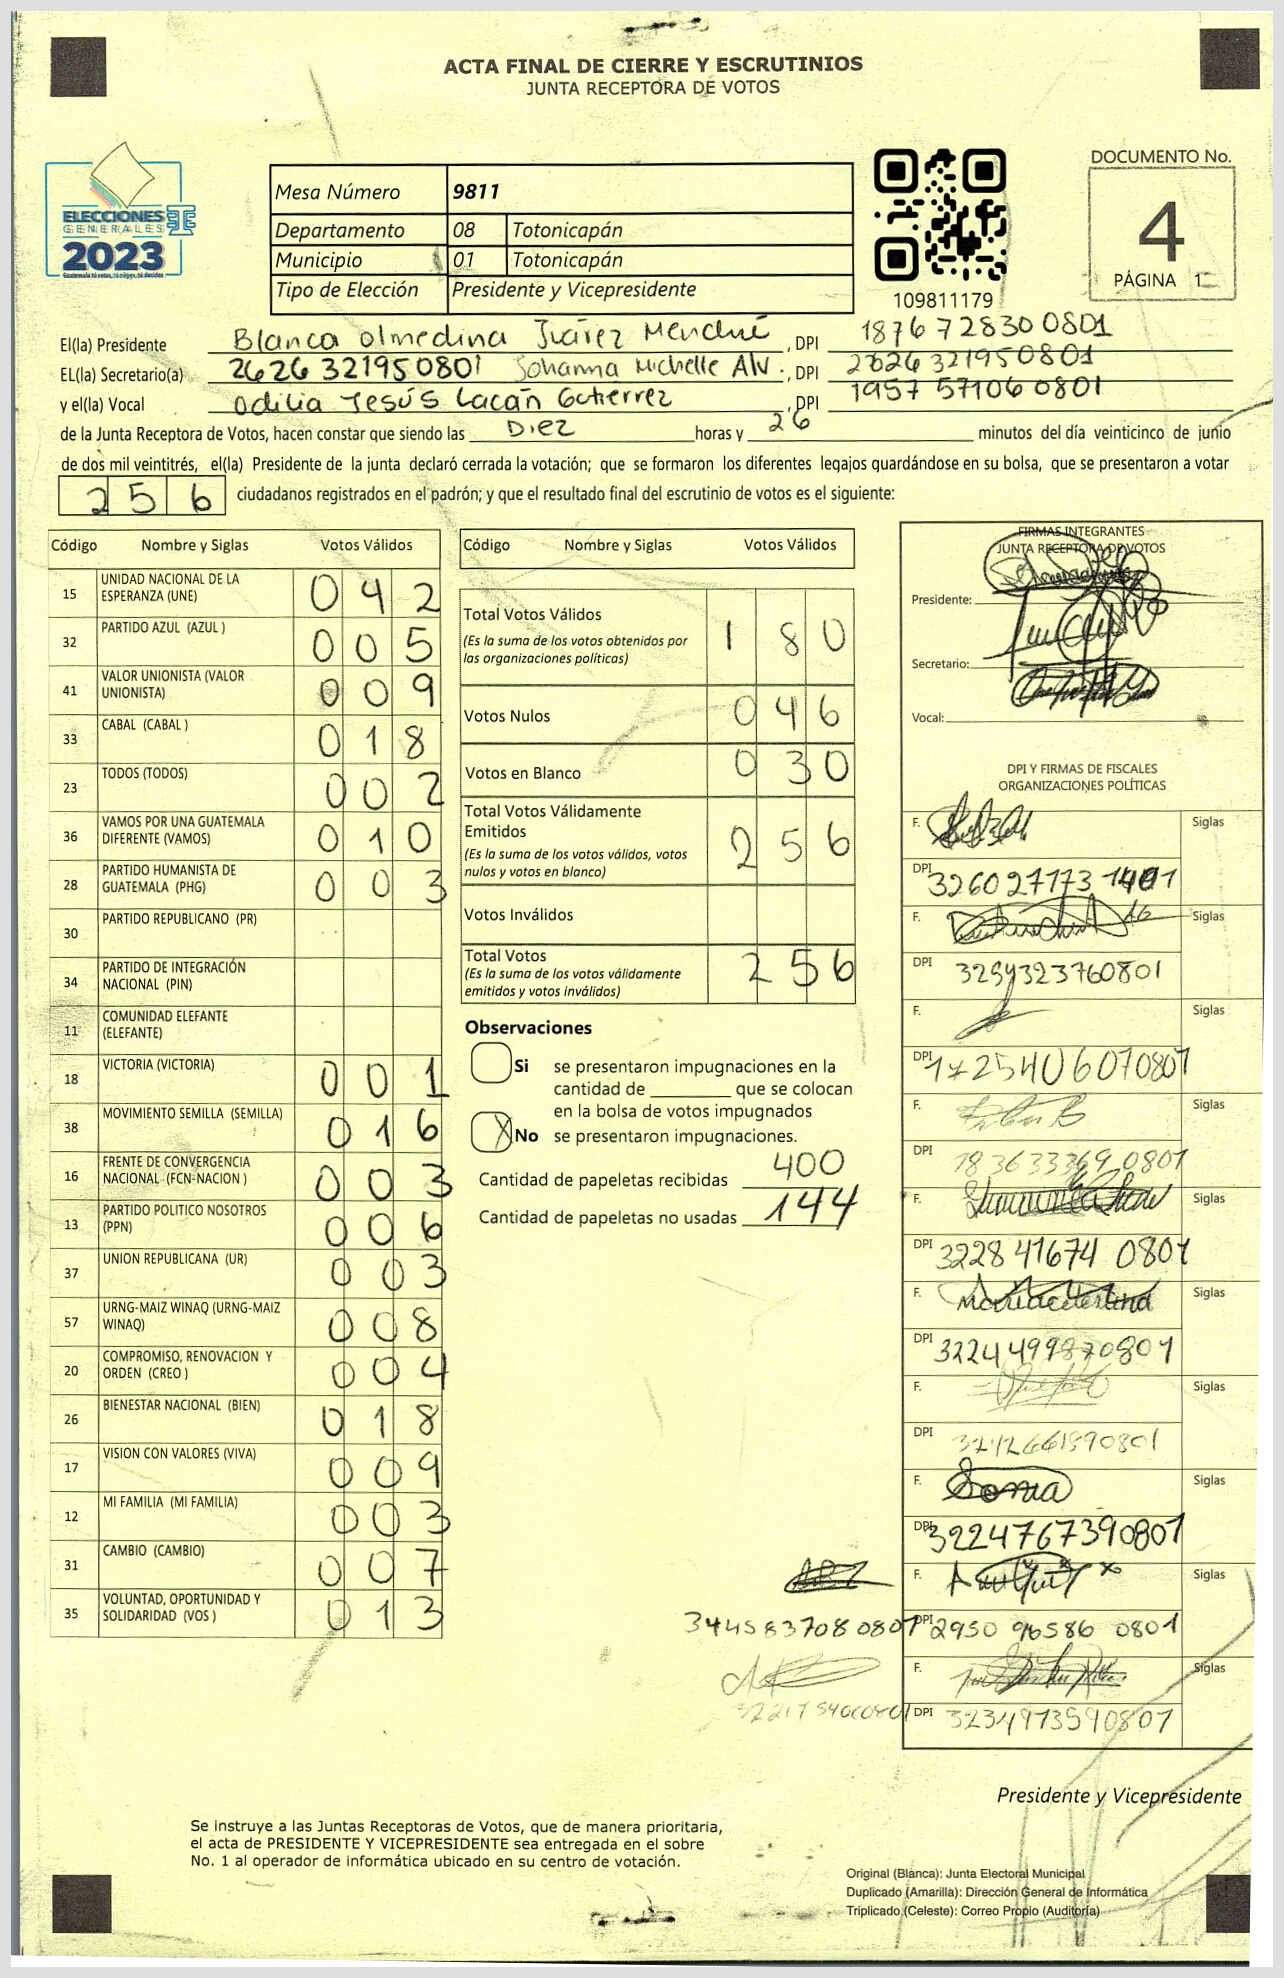 ACTA FINAL DE CIERRE Y ESCRUTINIOS
JUNTA RECEPTORA DE VOTOS
ELECCIONES
GENERALES
2023
Mesa Número 9811
Departamento 08 Totonicapán
Municipio 01 Totonicapán
Tipo de Elección Presidente y Vicepresidente
109811179
DOCUMENTO No.
4
PÁGINA 1
El(la) Presidente Blanca Olmedina Juárez Menchú , DPI 1876 72830 0801
EL(la) Secretario(a) 2626 32195 0801 Johanna Michelle Alv. , DPI 2626 32195 0801
y el(la) Vocal Odilia Jesús Lacán Gutierrez , DPI 1957 57106 0801
de la Junta Receptora de Votos, hacen constar que siendo las Diez horas y 26 minutos del día veinticinco de junio
de dos mil veintitrés, el(la) Presidente de la junta declaró cerrada la votación; que se formaron los diferentes legajos guardándose en su bolsa, que se presentaron a votar
256 ciudadanos registrados en el padrón; y que el resultado final del escrutinio de votos es el siguiente:
Código Nombre y Siglas Votos Válidos
15 UNIDAD NACIONAL DE LA ESPERANZA (UNE) 042
32 PARTIDO AZUL (AZUL ) 005
41 VALOR UNIONISTA (VALOR UNIONISTA) 009
33 CABAL (CABAL ) 018
23 TODOS (TODOS) 002
36 VAMOS POR UNA GUATEMALA DIFERENTE (VAMOS) 010
28 PARTIDO HUMANISTA DE GUATEMALA (PHG) 003
30 PARTIDO REPUBLICANO (PR)
34 PARTIDO DE INTEGRACIÓN NACIONAL (PIN)
11 COMUNIDAD ELEFANTE (ELEFANTE)
18 VICTORIA (VICTORIA) 001
38 MOVIMIENTO SEMILLA (SEMILLA) 016
16 FRENTE DE CONVERGENCIA NACIONAL (FCN-NACION ) 003
13 PARTIDO POLITICO NOSOTROS (PPN) 006
37 UNION REPUBLICANA (UR) 003
57 URNG-MAIZ WINAQ (URNG-MAIZ WINAQ) 008
20 COMPROMISO, RENOVACION Y ORDEN (CREO ) 004
26 BIENESTAR NACIONAL (BIEN) 018
17 VISION CON VALORES (VIVA) 009
12 MI FAMILIA (MI FAMILIA) 003
31 CAMBIO (CAMBIO) 007
35 VOLUNTAD, OPORTUNIDAD Y SOLIDARIDAD (VOS ) 013
Código Nombre y Siglas Votos Válidos
Total Votos Válidos 180
(Es la suma de los votos obtenidos por
las organizaciones políticas)
Votos Nulos 046
Votos en Blanco 030
Total Votos Válidamente
Emitidos 256
(Es la suma de los votos válidos, votos
nulos y votos en blanco)
Votos Inválidos
Total Votos 256
(Es la suma de los votos válidamente
emitidos y votos inválidos)
Observaciones
Si se presentaron impugnaciones en la
cantidad de ________ que se colocan
en la bolsa de votos impugnados
X No se presentaron impugnaciones.
Cantidad de papeletas recibidas 400
Cantidad de papeletas no usadas 144
FIRMAS INTEGRANTES
JUNTA RECEPTORA DE VOTOS
Presidente:
Secretario:
Vocal:
DPI Y FIRMAS DE FISCALES
ORGANIZACIONES POLÍTICAS
F. Siglas
DPI
F. Siglas
DPI
F. Siglas
DPI
F. Siglas
DPI
F. Siglas
DPI 3228 41674 0801
F. Siglas
DPI
F. Siglas
DPI
F. Sonia Siglas
DPI 3224767390801
F. Siglas
DPI 2950 96586 0801
F. Siglas
DPI 3234973590801
3445837080801
Presidente y Vicepresidente
Se instruye a las Juntas Receptoras de Votos, que de manera prioritaria,
el acta de PRESIDENTE Y VICEPRESIDENTE sea entregada en el sobre
No. 1 al operador de informática ubicado en su centro de votación.
Original (Blanca): Junta Electoral Municipal
Duplicado (Amarilla): Dirección General de Informática
Triplicado (Celeste): Correo Propio (Auditoría)